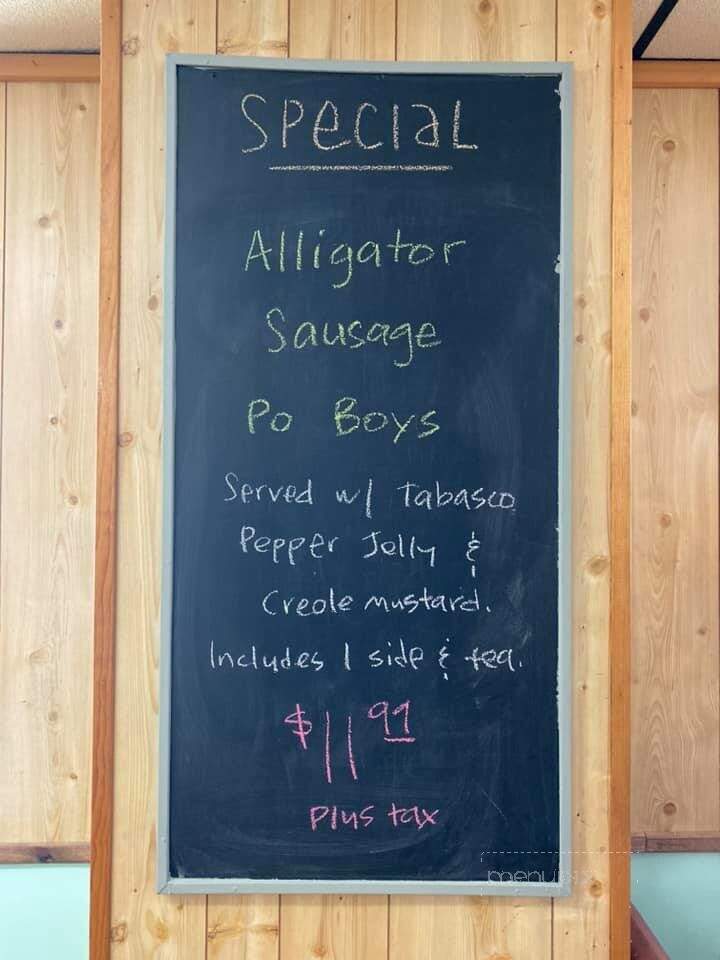 Special
Alligator
Sausage
Po Boys
Served w/ Tabasco
Pepper Jelly &
Creole mustard.
Includes 1 side & tea.
$11 99
plus tax